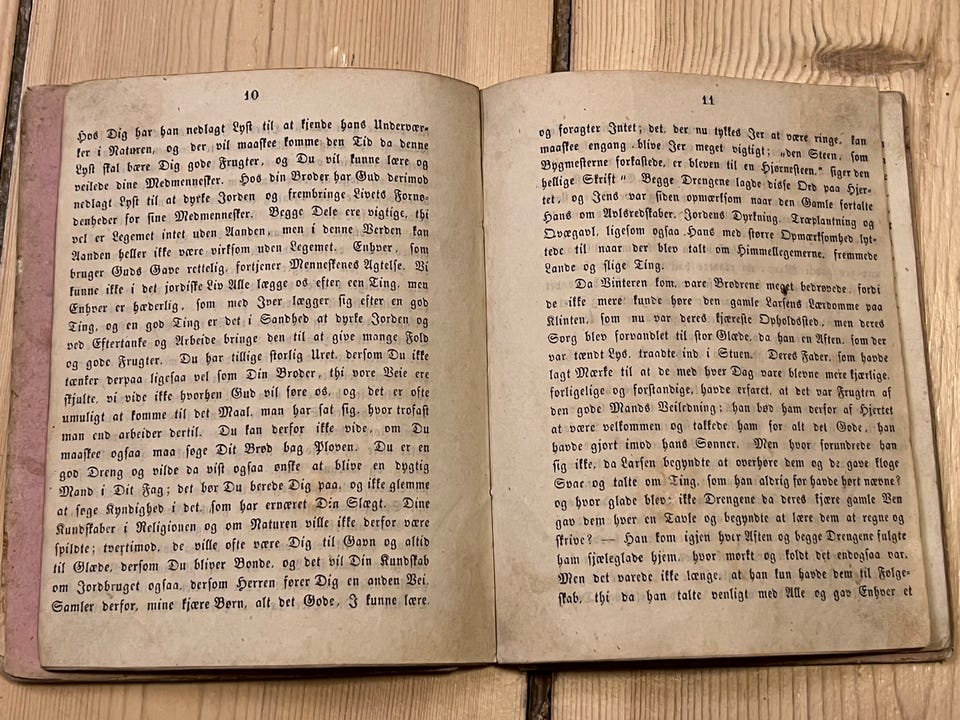 10
Hos Dig har han nedlagt Lyst til at kjende hans Undervær-
ker i Naturen, og der vil maaskee komme den Tid da denne
Lyst skal bære Dig gode Frugter, og Du vil kunne lære og
veilede dine Medmennesker. Hos din Broder har Gud derimod
nedlagt Lyst til at dyrke Jorden og frembringe Livets Forno-
denheder for sine Medmennesker. Begge Dele ere vigtige, thi
vel er Legemet intet uden Aanden, men i denne Verden kan
Aanden heller ikke være virksom uden Legemet. Enhver, som
bruger Guds Gave rettelig, fortjener Menneskenes Agtelse. Vi
kunne ikke i det jordiske Liv Alle lægge os efter een Ting, men
Enhver er hæderlig, som med Iver lægger sig efter en god
Ting, og en god Ting er det i Sandhed at dyrke Jorden og
ved Eftertanke og Arbeide bringe den til at give mange Fold
og gode Frugter. Du har tillige storlig Uret, dersom Du ikke
tænker derpaa ligesaa vel som Din Broder, thi vore Veie ere
skjulte, vi vide ikke hvorhen Gud vil føre os, og det er ofte
umuligt at komme til det Maal, man har sat sig, hvor trofast
man end arbeider dertil. Du kan derfor ikke vide, om Du
maaskee ogsaa maa søge Dit Brød bag Ploven. Du er en
god Dreng og vilde da vist ogsaa ønske at blive en dygtig
Mand i Dit Fag; det bør Du berede Dig paa, og ikke glemme
at søge Kyndighed i det, som har ernæret Din Slægt. Dine
Kundskaber i Religionen og om Naturen ville ikke derfor være
spildte; tvertimod, de ville ofte være Dig til Gavn og altid
til Glæde, dersom Du bliver Bonde, og det vil Din Kundskab
om Jordbruget ogsaa, dersom Herren fører Dig en anden Vei.
Samler derfor, mine kjære Børn, alt det Gode, I kunne lære,
11
og foragter Intet; det, der nu tykkes Jer at være ringe, kan
maaskee engang blive Jer meget vigtigt; „den Steen, som
Bygmesterne forkastede, er bleven til en Hjørnesteen,“ siger den
hellige Skrift “ Begge Drengene lagde disse Ord paa Hjer-
tet, og Jens var siden opmærksom naar den Gamle fortalte
Hans om Avlsredskaber, Jordens Dyrkning, Træplantning og
Qvægavl, ligesom ogsaa Hans med større Opmærksomhed lyt-
tede til naar der blev talt om Himmellegemerne, fremmede
Lande og slige Ting.
Da Vinteren kom, vare Brødrene meget bedrøvede, fordi
de ikke mere kunde høre den gamle Larsens Lærdomme paa
Klinten, som nu var deres kjæreste Opholdssted, men deres
Sorg blev forvandlet til stor Glæde, da han en Aften, som der
var tændt Lys, traadte ind i Stuen. Deres Fader, som havde
lagt Mærke til at de med hver Dag vare blevne mere kjærlige,
forligelige og forstandige, havde erfaret, at det var Frugten af
den gode Mands Veiledning; han bød ham derfor af Hjertet
at være velkommen og takkede ham for alt det Gode, han
havde gjort imod hans Sønner. Men hvor forundrede han
sig ikke, da Larsen begyndte at overhøre dem og de gave kloge
Svar og talte om Ting, som han aldrig før havde hørt nævne?
og hvor glade blev ikke Drengene da deres kjære gamle Ven
gav dem hver en Tavle og begyndte at lære dem at regne og
skrive? — Han kom igjen hver Aften og begge Drengene fulgte
ham sjæleglade hjem, hvor mørkt og koldt det endogsaa var.
Men det varede ikke længe, at han kun havde dem til Følge-
skab, thi da han talte venligt med Alle og gav Enhver et